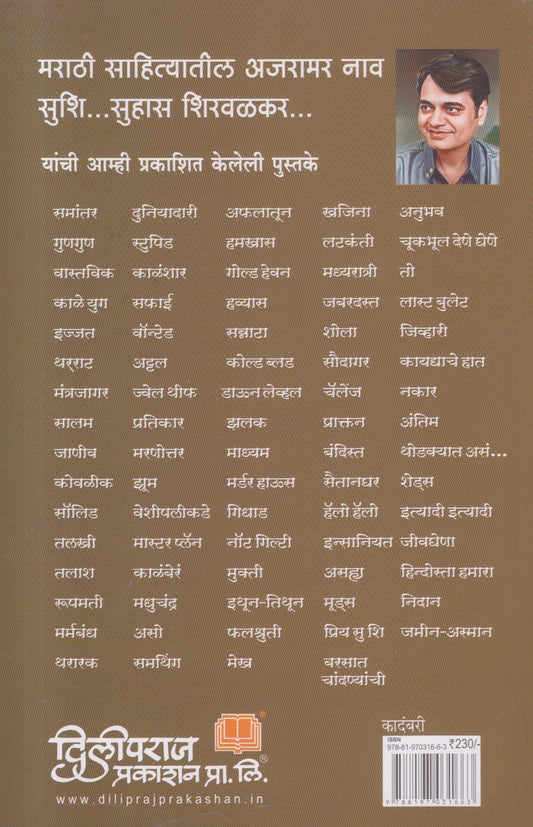 मराठी साहित्यातील अजरामर नाव
सुशि...सुहास शिरवळकर...
यांची आम्ही प्रकाशित केलेली पुस्तके
समांतर दुनियादारी अफलातून खजिना अनुभव
गुणगुण स्टुपिड हमखास लटकंती चूकभूल देणे घेणे
वास्तविक काळंशार गोल्ड हेवन मध्यरात्री तो
काळे युग सफाई हव्यास जबरदस्त लास्ट बुलेट
इज्जत वॉन्टेड सन्नाटा शोला जिव्हारी
थर्राट अट्टल कोल्ड ब्लड सौदागर कायद्याचे हात
मंत्रजागर ज्वेल थीफ डाऊन लेव्हल चॅलेंज नकार
सालम प्रतिकार झलक प्राक्तन अंतिम
जाणीव मरणोत्तर माध्यम बंदिस्त थोडक्यात असं...
कोवळीक झूम मर्डर हाऊस सैतानघर शेड्स
सॉलिड वेशीपलीकडे गिधाड हॅलो हॅलो इत्यादी इत्यादी
तलखी मास्टर प्लॅन नॉट गिल्टी इन्सानियत जीवघेणा
तलाश काळंबेरं मुक्ती असह्य हिन्दोस्ता हमारा
रूपमती मधुचंद्र इथून-तिथून मूड्स निदान
मर्मबंध असो फलश्रुती प्रिय सु शि जमीन-अस्मान
थरारक समथिंग मेख बरसात
चांदण्यांची
कादंबरी
ISBN
978-81-970316-6-3 ₹230/-
9 788197 031663
दिलीपराज®
प्रकाशन प्रा. लि.®
www.diliprajprakashan.in